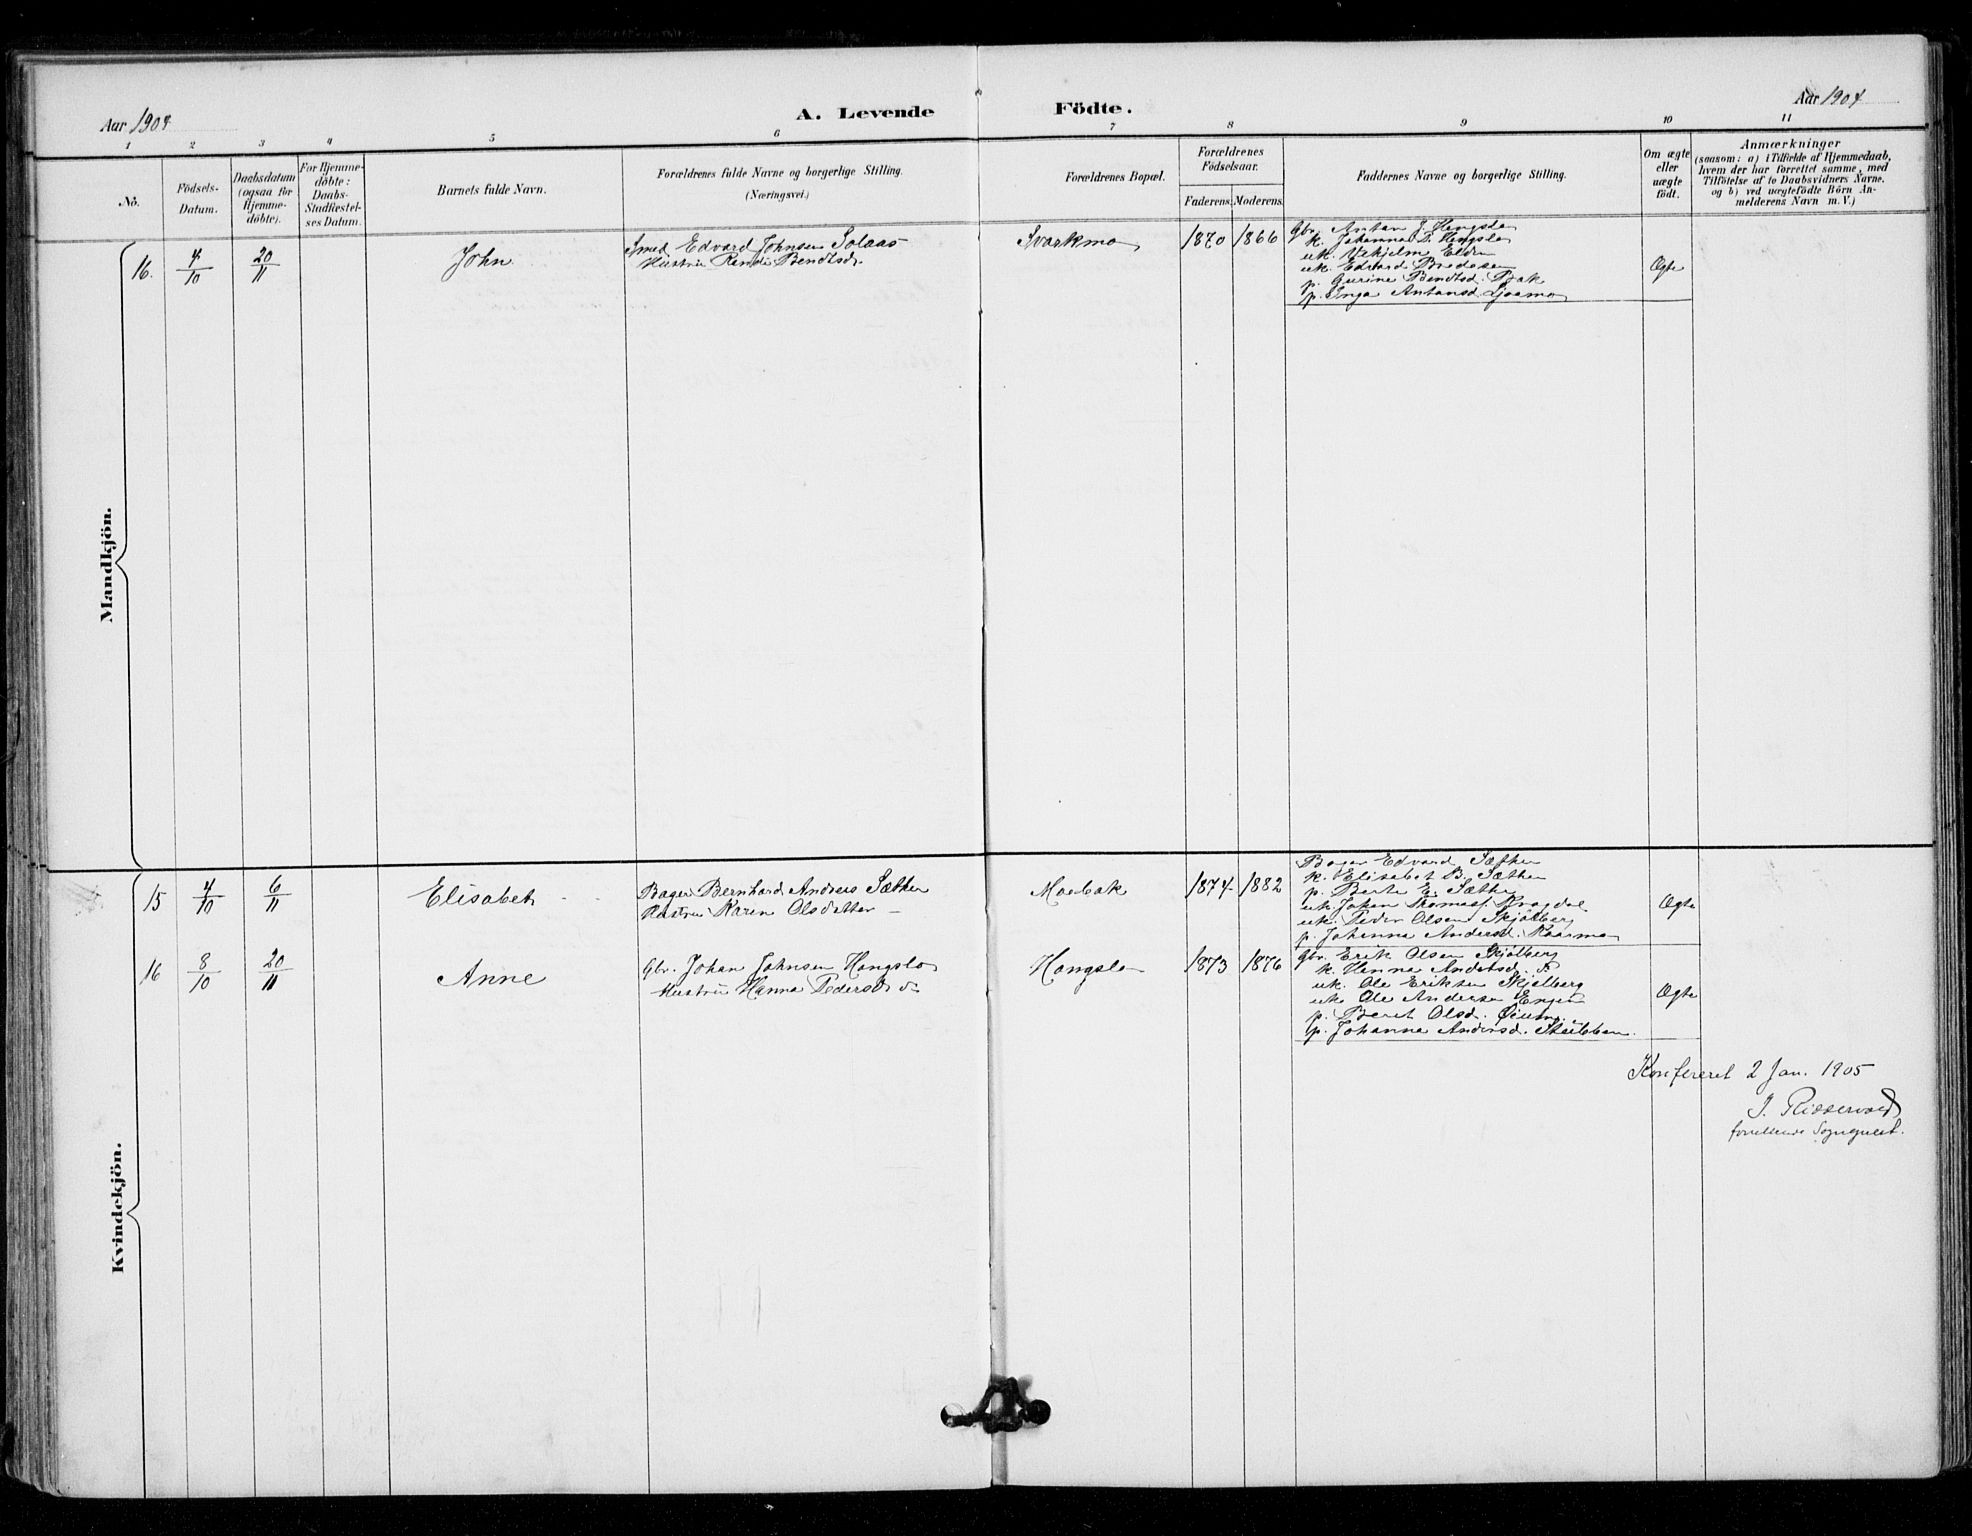 Aar 1904
A. Levende Födte.
Aar 1904
1 2 3 4 5 6 7 8 9 10 11
No.
Födsels-Datum.
Daabsdatum (ogsaa for Hjemme-döbte).
For Hjemme-döbte: Daabs-Stadfæstel-ses Datum.
Barnets fulde Navn.
Forældrenes fulde Navne og borgerlige Stilling.
(Næringsvei.)
Forældrenes Bopæl.
Forældrenes Födselsaar.
Faderens. Moderens.
Faddernes Navne og borgerlige Stilling.
Om ægte eller uægte födt.
Anmærkninger
(saasom: a) i Tilfælde af Hjemmedaab,
hvem der har forrettet samme, med
Tilföielse af to Daabsvidners Navne.
og b) ved uægtefödte Börn An-
melderens Navn m. V.)
Mandkjön.
16. 4/10 20/11 John
Smed Edvard Johnsen Solaas
Hustru Randi Bendtsd.
Svarkmo 1870 1866
Gbr. Antan J. Hongslo
k. Johanna D. Hongslo
uk. Vilhjelm Elden
uk. Edvard Bredesen
p. Gurine Bendtsd. Bak
p. Inga Antonsd.
Ægte
Kvindekjön.
15 4/10 6/11 Elisabet
Bager Bernhard Anders Sæther
Hustru Karen Olsdatter
Moebak 1874 1882
Bager Edvard Sæther
k. Elisabet B. Sæther
p. Berte E. Sæther
uk. Johan Thomass. Krogdal
uk. Peder Olsen Skjölberg
p. Johanna Andersd. Kaasmo
Ægte
16 8/10 20/11 Anne
Gbr. Johan Johnsen Hongslo
Hustru Hanna Pedersd.
Hongslo 1873 1876
Gbr. Erik Olsen Skjölberg
k. Hanna Andersd.
uk. Ole Eriksen Skjölberg
uk. Ole Andersen Engen
p. Beret Olsd. Öium
p. Johanna Andersd. Stubban.
Ægte
Konfereret 2 Jan. 1905
J. Risservold
Sogneprest.